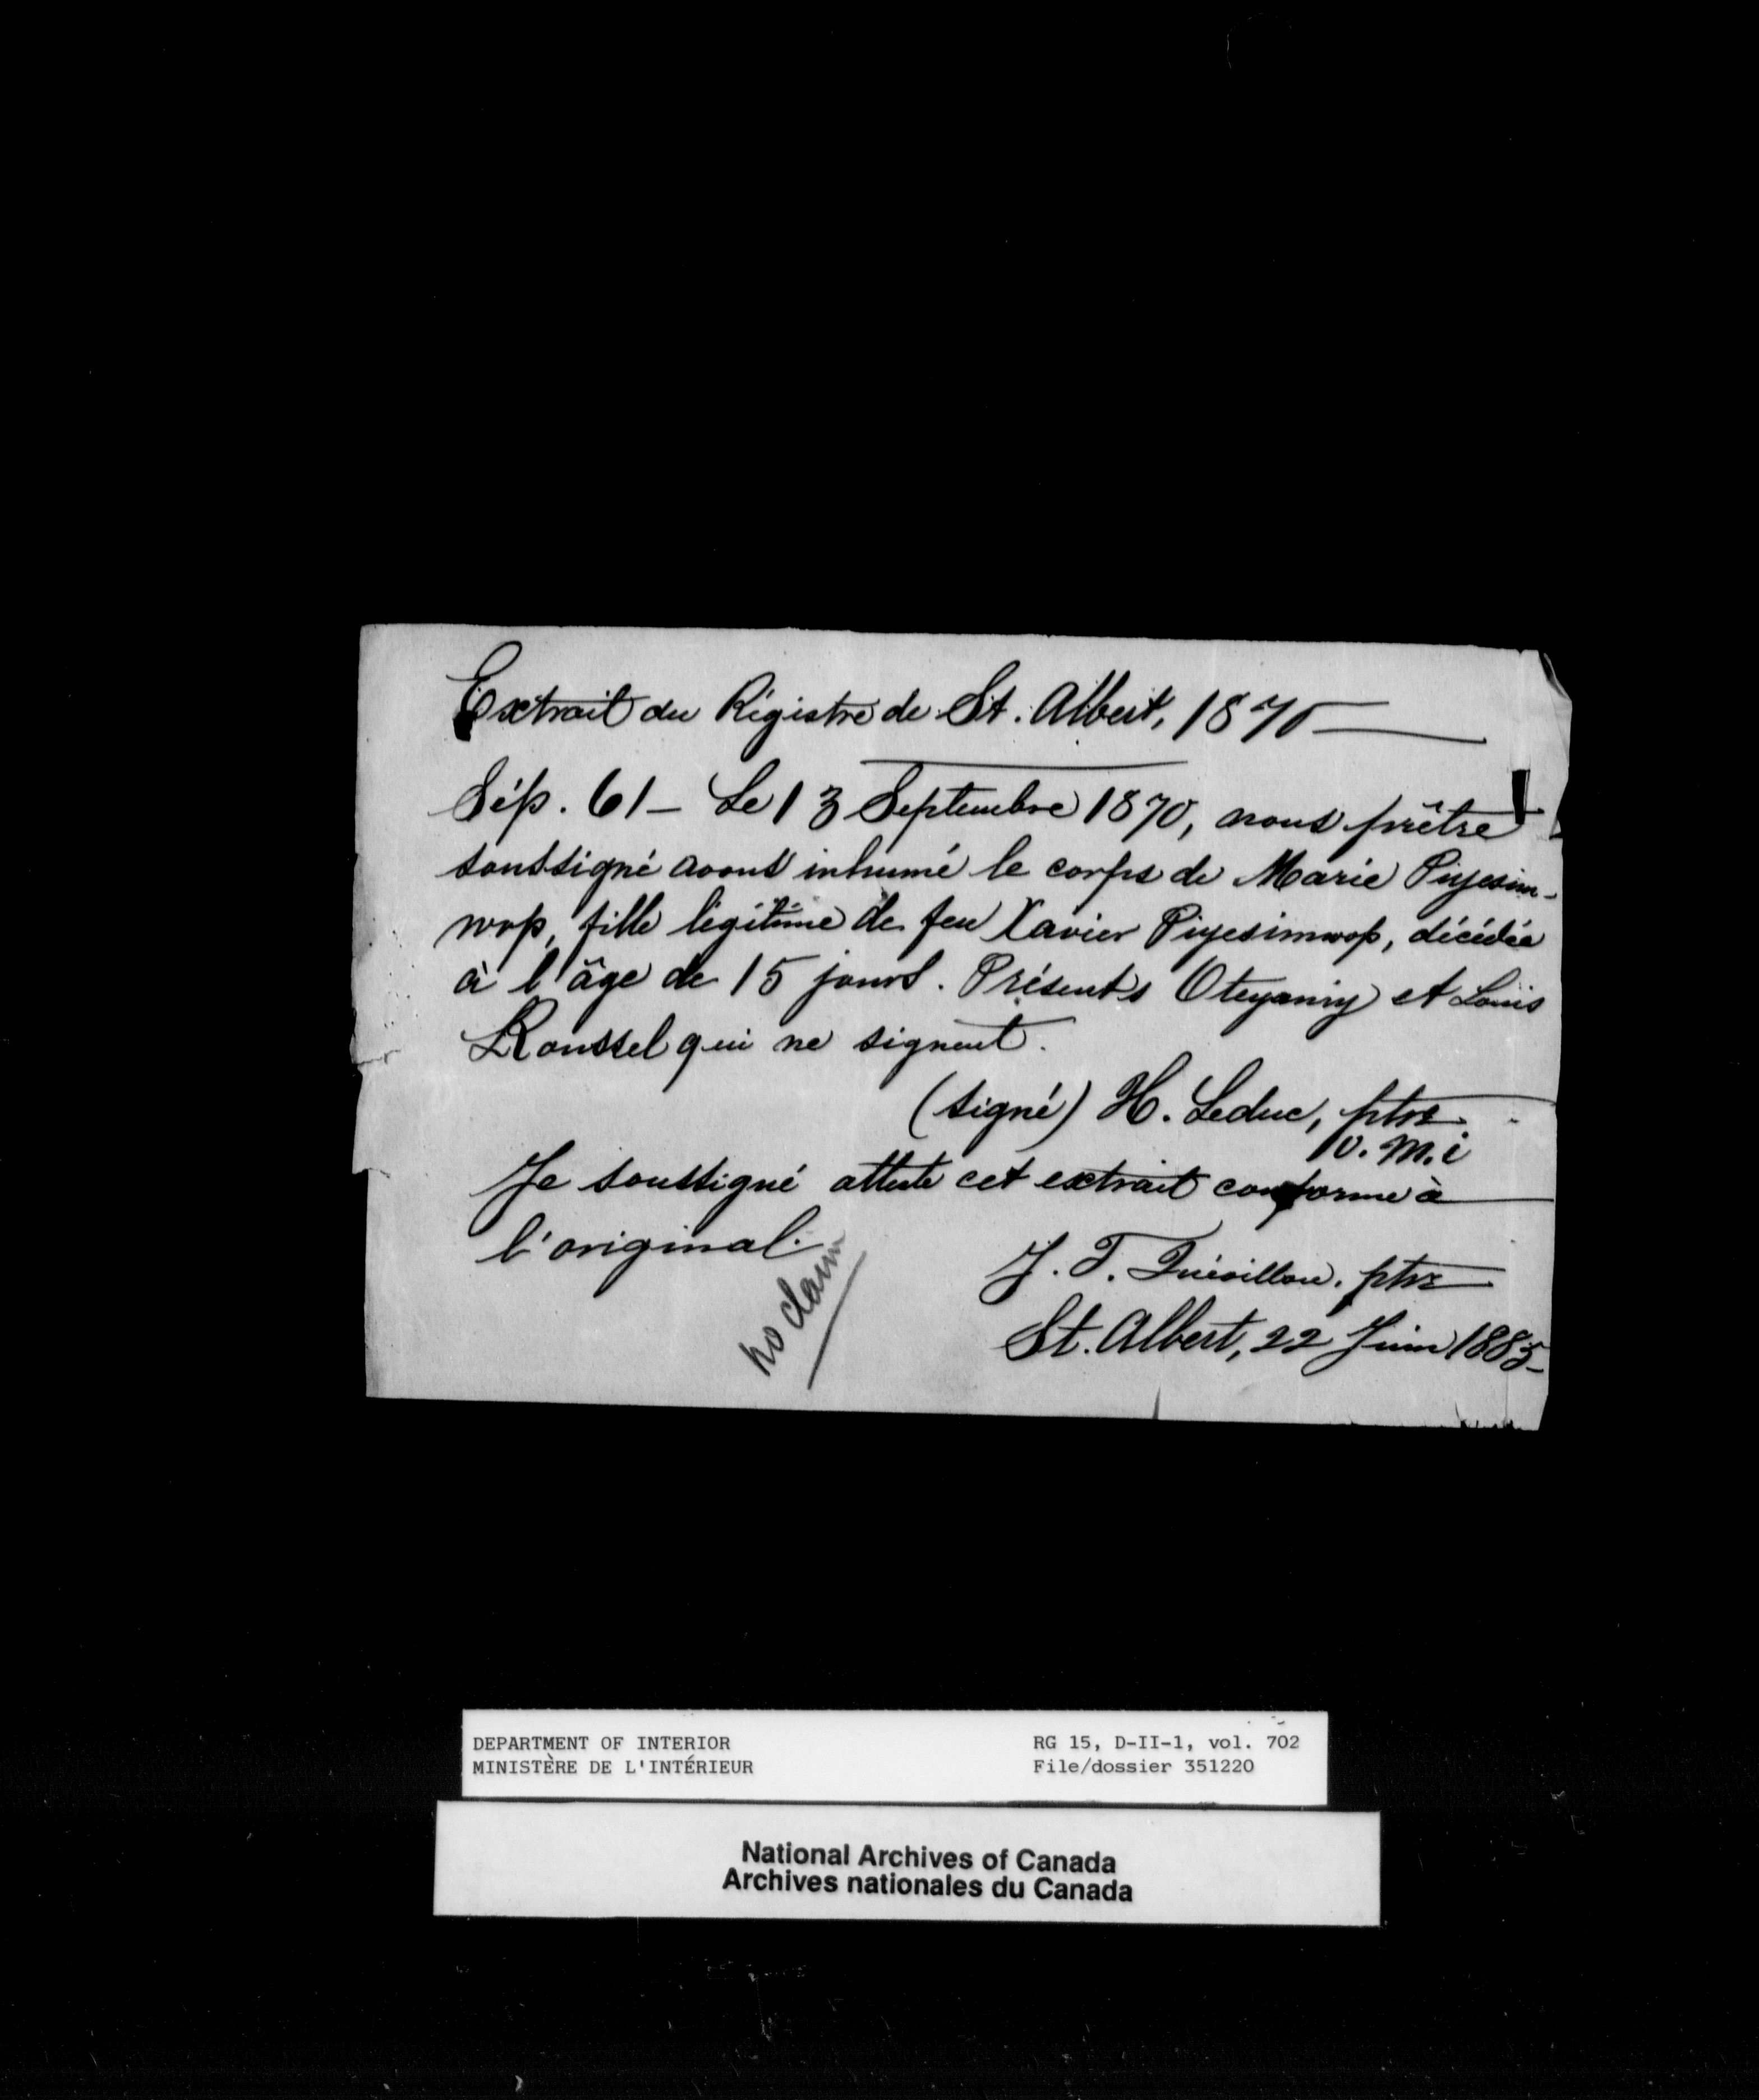 Extrait du Régistre de St. Albert, 1870
Sép. 61 - Le 13 Septembre 1870, nous prêtre
soussigné avons inhumé le corps de Marie Piyesim-
wop, fille légitime de feu Xavier Piyesimwop, décédée
à l'âge de 15 jours. Présents Oteyamiy et Louis
Roussel qui ne signent.
(signé) H. Leduc, ptre
o.m.i
Je soussigné atteste cet extrait conforme à
l'original.
J. T. Quévillon, ptre
St. Albert, 22 Juin 1885
No claim
DEPARTMENT OF INTERIOR
MINISTÈRE DE L'INTÉRIEUR
RG 15, D-II-1, vol. 702
File/dossier 351220
National Archives of Canada
Archives nationales du Canada